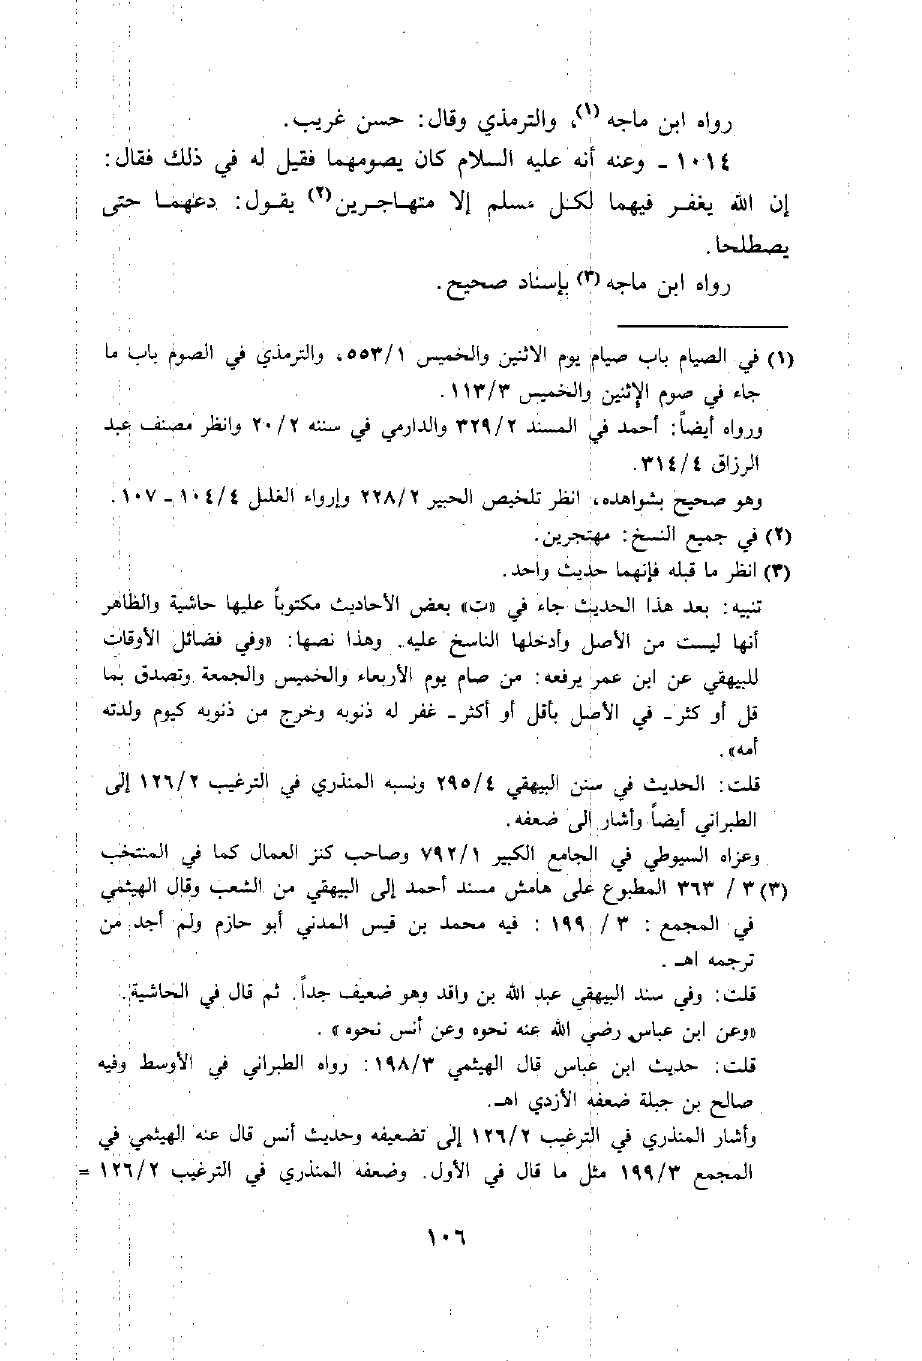 رواه ابن ماجه (١)، والترمذي وقال: حسن غريب.
١٠١٤ ـ وعنه أنه عليه السلام كان يصومهما فقيل له في ذلك فقال:
إن الله يغفر فيهما لكل مسلم إلا متهاجرين(٢) يقول: دعهما حتى
يصطلحا.
رواه ابن ماجه (٣) بإسناد صحيح.
(١) في الصيام باب صيام يوم الاثنين والخميس ٥٥٣/١، والترمذي في الصوم باب ما
جاء في صوم الإثنين والخميس ١١٣/٣.
ورواه أيضاً: أحمد في المسند ٣٢٩/٢ والدارمي في سننه ٢٠/٢ وانظر مصنف عبد
الرزاق ٣١٤/٤.
وهو صحيح بشواهده، انظر تلخيص الحبير ٢٢٨/٢ وإرواء الغليل ١٠٤/٤ ـ ١٠٧.
(٢) في جميع النسخ: مهتجرين.
(٣) انظر ما قبله فإنهما حديث واحد.
تنبيه: بعد هذا الحديث جاء في «ت» بعض الأحاديث مكتوباً عليها حاشية والظاهر
أنها ليست من الأصل وأدخلها الناسخ عليه. وهذا نصها: «وفي فضائل الأوقات
للبيهقي عن ابن عمر يرفعه: من صام يوم الأربعاء والخميس والجمعة وتصدق بما
قل أو كثر ـ في الأصل بأقل أو أكثر ـ غفر له ذنوبه وخرج من ذنوبه كيوم ولدته
أمه».
قلت: الحديث في سنن البيهقي ٢٩٥/٤ ونسبه المنذري في الترغيب ١٢٦/٢ إلى
الطبراني أيضاً وأشار إلى ضعفه.
وعزاه السيوطي في الجامع الكبير ٧٩٢/١ وصاحب كنز العمال كما في المنتخب
(٣) ٣ / ٣٦٣ المطبوع على هامش مسند أحمد إلى البيهقي من الشعب وقال الهيثمي
في المجمع : ٣ / ١٩٩ : فيه محمد بن قيس المدني أبو حازم ولم أجد من
ترجمه اهـ .
قلت: وفي سند البيهقي عبد الله بن واقد وهو ضعيف جداً. ثم قال في الحاشية.
«وعن ابن عباس رضي الله عنه نحوه وعن أنس نحوه» .
قلت: حديث ابن عباس قال الهيثمي ١٩٨/٣: رواه الطبراني في الأوسط وفيه
صالح بن جبلة ضعفه الأزدي اهـ.
وأشار المنذري في الترغيب ١٢٦/٢ إلى تضعيفه وحديث أنس قال عنه الهيثمي في
المجمع ١٩٩/٣ مثل ما قال في الأول. وضعفه المنذري في الترغيب ١٢٦/٢ =
١٠٦